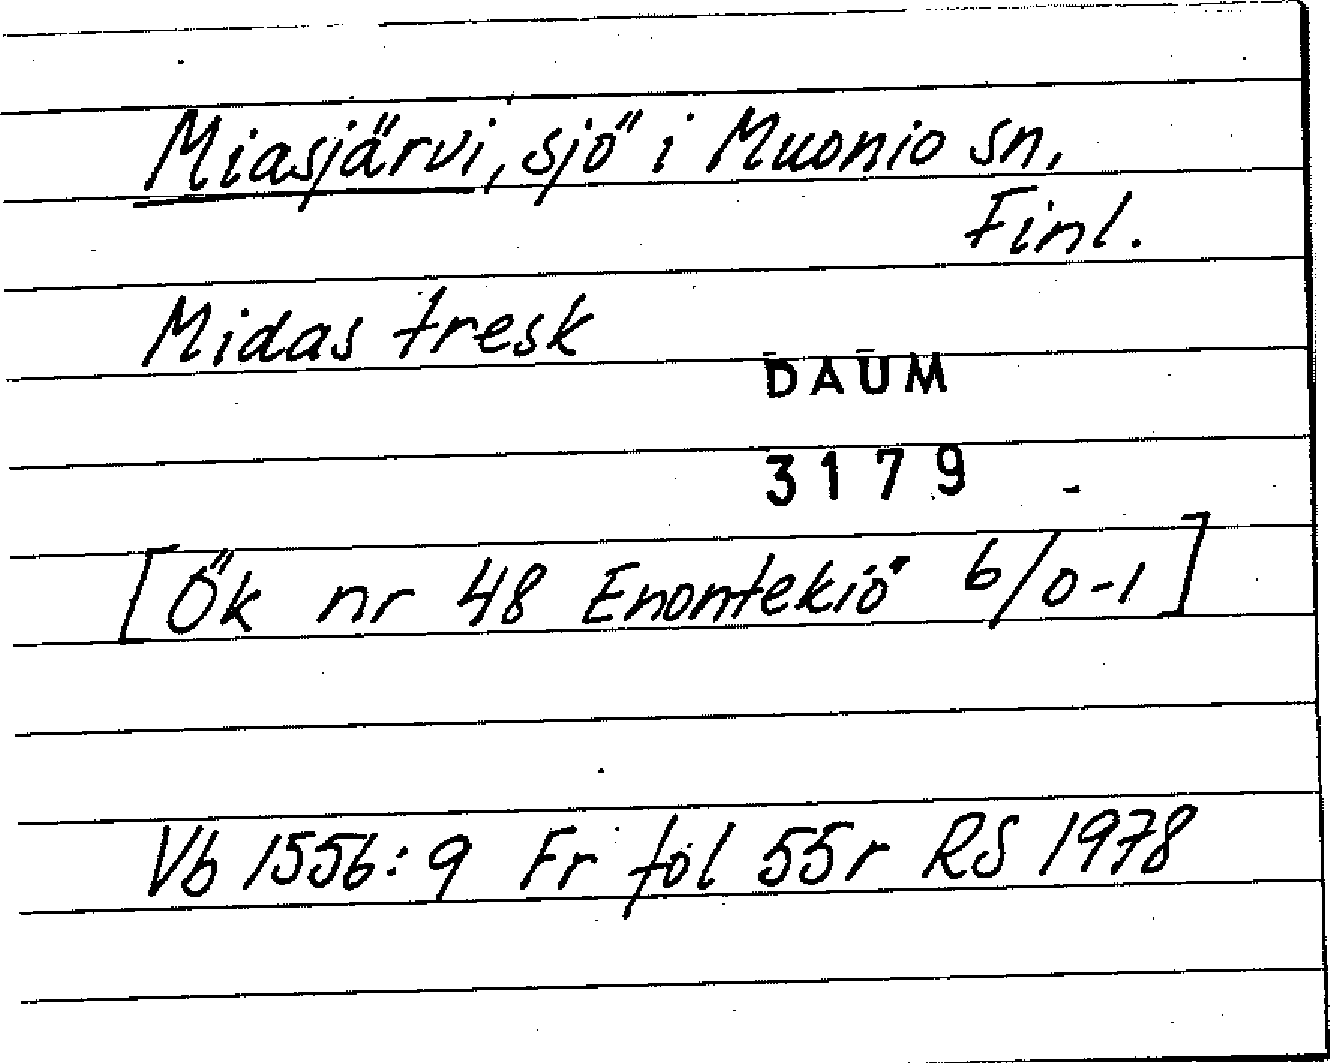 Miasjärvi, sjö i Muonio sn,
Finl.
Midas tresk
DAUM
3179
[Ök nr 48 Enontekiö 6/0-1]
Vb 1556:9 Fr fol 55r RS 1978